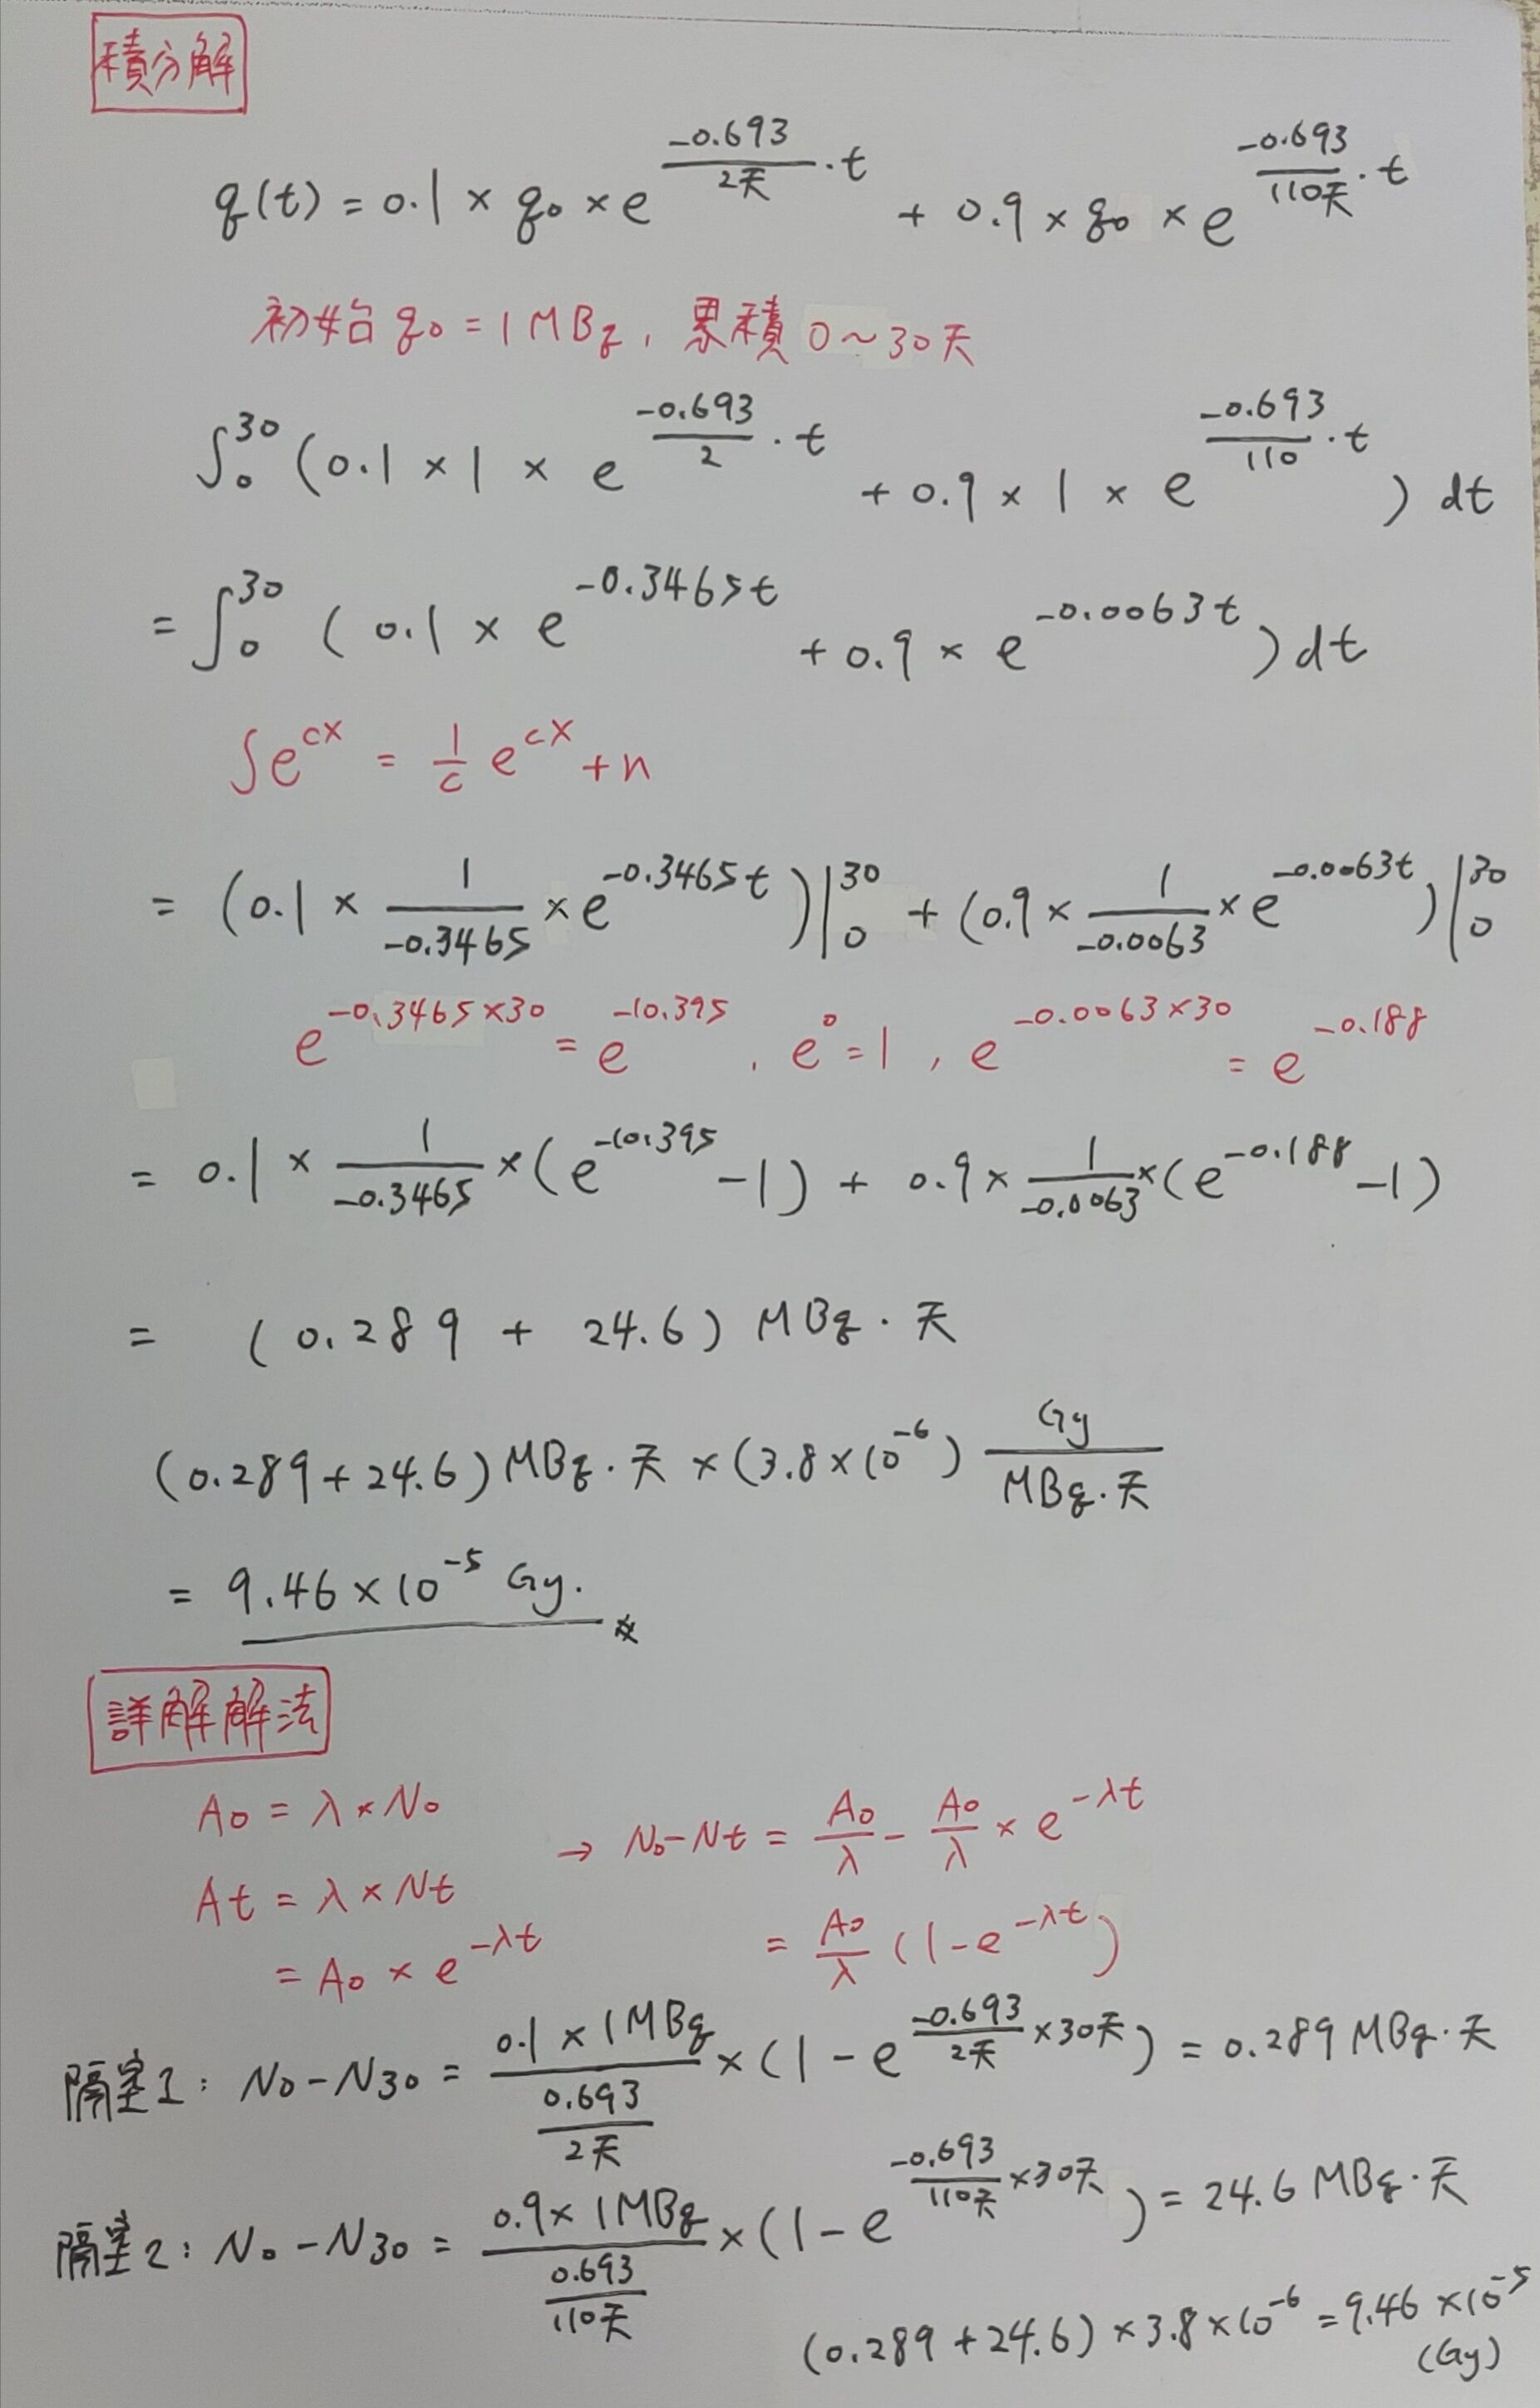 積分解
q(t) = 0.1 × q₀ × e^(-0.693/2天 · t) + 0.9 × q₀ × e^(-0.693/110天 · t)
初始 q₀ = 1 MBq, 累積 0~30天
∫₀³⁰ (0.1 × 1 × e^(-0.693/2 · t) + 0.9 × 1 × e^(-0.693/110 · t)) dt
= ∫₀³⁰ (0.1 × e^(-0.3465t) + 0.9 × e^(-0.0063t)) dt
∫e^(cx) = 1/c e^(cx) + n
= (0.1 × 1/-0.3465 × e^(-0.3465t))|₀³⁰ + (0.9 × 1/-0.0063 × e^(-0.0063t))|₀³⁰
e^(-0.3465×30) = e^(-10.395), e⁰ = 1, e^(-0.0063×30) = e^(-0.188)
= 0.1 × 1/-0.3465 × (e^(-10.395) - 1) + 0.9 × 1/-0.0063 × (e^(-0.188) - 1)
= (0.289 + 24.6) MBq · 天
(0.289 + 24.6) MBq · 天 × (3.8 × 10⁻⁶) Gy/MBq · 天
= 9.46 × 10⁻⁵ Gy.
詳解解法
A₀ = λ × N₀
At = λ × Nt
= A₀ × e^(-λt)
→ N₀ - Nt = A₀/λ - A₀/λ × e^(-λt)
= A₀/λ (1 - e^(-λt))
隔室1: N₀ - N₃₀ = 0.1 × 1MBq/(0.693/2天) × (1 - e^(-0.693/2天 × 30天)) = 0.289 MBq · 天
隔室2: N₀ - N₃₀ = 0.9 × 1MBq/(0.693/110天) × (1 - e^(-0.693/110天 × 30天)) = 24.6 MBq · 天
(0.289 + 24.6) × 3.8 × 10⁻⁶ = 9.46 × 10⁻⁵
(Gy)